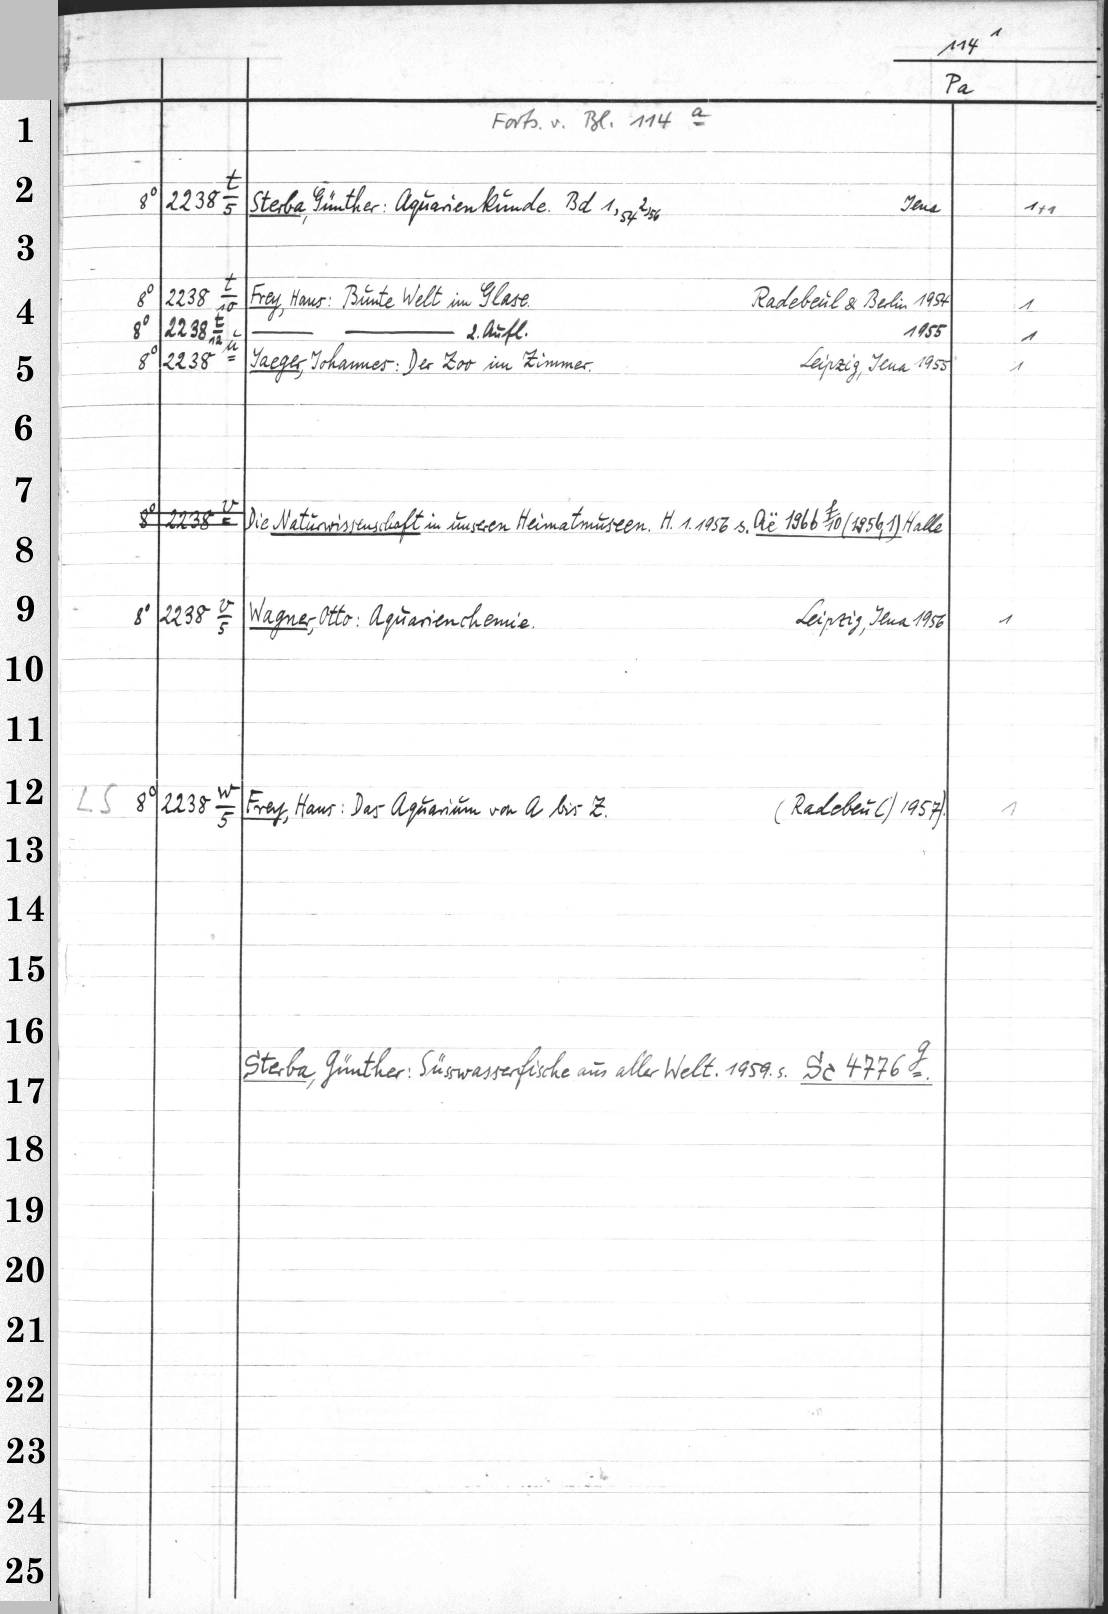 114 1
Pa
Forts. v. Bl. 114 a
8° 2238 t/5 Sterba, Günther: Aquarienkunde. Bd 1,54 2,56 Jena 1+1
8° 2238 t/10 Frey, Hans: Bunte Welt im Glase. Radebeul & Berlin 1954 1
8° 2238 t/12 —— —— 2. Aufl. 1955 1
8° 2238 u Jaeger, Johannes: Der Zoo im Zimmer. Leipzig, Jena 1955 1
8° 2238 v Die Naturwissenschaft in unseren Heimatmuseen. H. 1. 1956 s. Aë 1966 t/10 (1956,1) Halle
8° 2238 v/5 Wagner, Otto: Aquarienchemie. Leipzig, Jena 1956 1
LS 8° 2238 w/5 Frey, Hans: Das Aquarium von A bis Z. (Radebeul) 1957). 1
Sterba, Günther: Süsswasserfische aus aller Welt. 1959. s. Sc 4776 g.
1
2
3
4
5
6
7
8
9
10
11
12
13
14
15
16
17
18
19
20
21
22
23
24
25